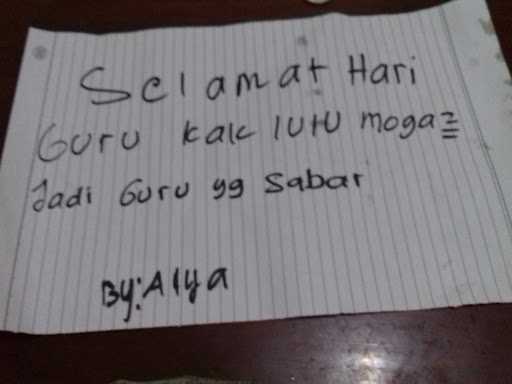 Selamat Hari
Guru kak lutu moga2
Jadi Guru yg Sabar
By: Alya